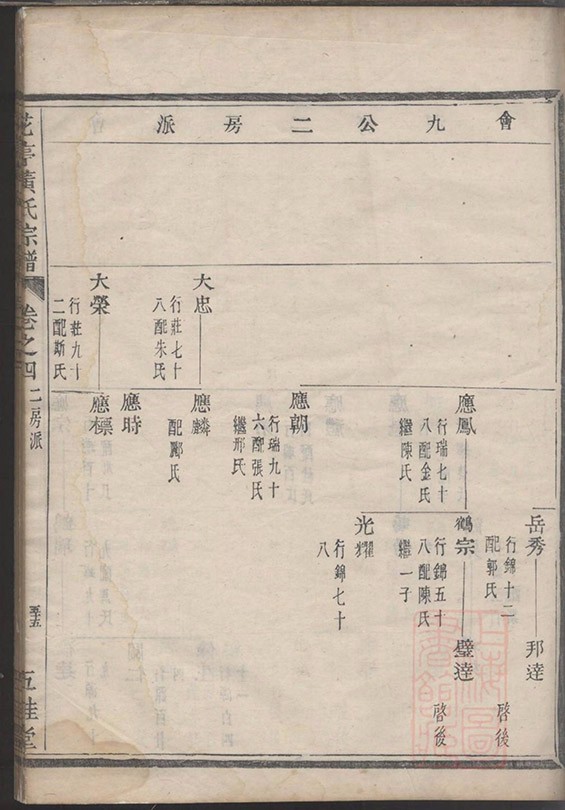 會九公二房派
岳秀
行錦十二
配郭氏
邦達
啓後
應鳳
行瑞七十
八配金氏
繼陳氏
鶴宗
行錦五十
八配陳氏
繼一子
璧達
啓後
光耀
行錦七十
八
應朝
行瑞九十
六配張氏
繼邢氏
大忠
行莊七十
八配朱氏
應麟
配酈氏
應時
大榮
行莊九十
二配斯氏
應標
花亭黃氏宗譜
卷之四
二房派
五桂堂